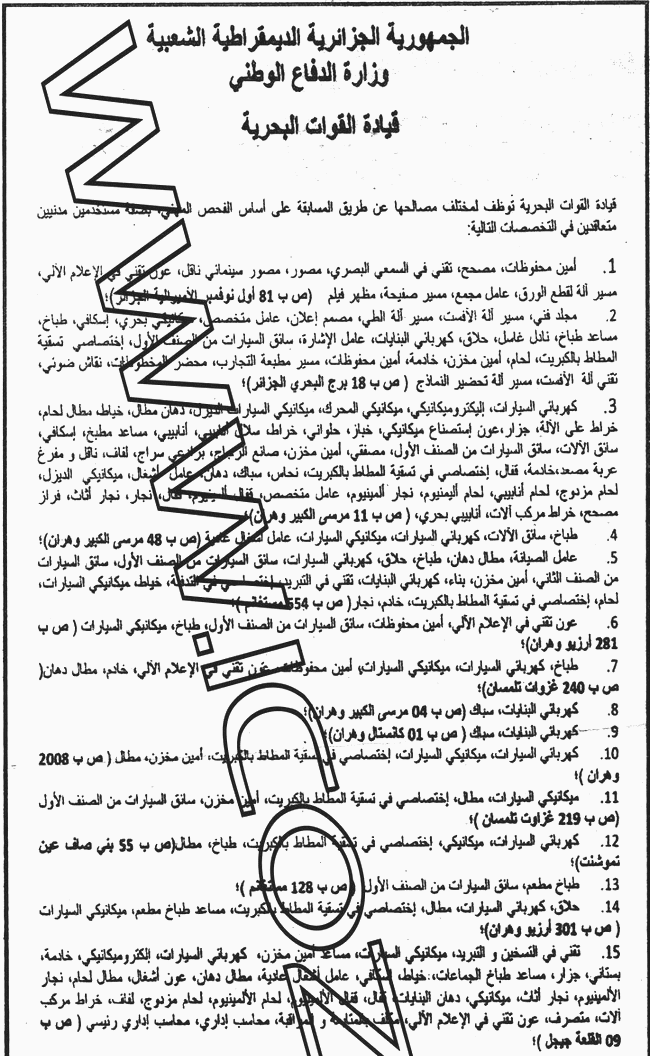 الجمهورية الجزائرية الديمقراطية الشعبية
وزارة الدفاع الوطني
قيادة القوات البحرية
قيادة القوات البحرية توظف لمختلف مصالحها عن طريق المسابقة على أساس الفحص المهني، بصفة مستخدمين مدنيين
متعاقدين في التخصصات التالية:
1. أمين محفوظات، مصحح، تقني في السمعي البصري، مصور، مصور سينمائي ناقل، عون تقني في الإعلام الآلي،
مسير آلة لقطع الورق، عامل مجمع، مسير صفيحة، مظهر فيلم (ص ب 81 أول نوفمبر الأميرالية الجزائر)؛
2. مجلد فني، مسير آلة الأفست، مسير آلة الطي، مصمم إعلان، عامل متخصص، ميكانيكي بحري، إسكافي، طباخ،
مساعد طباخ، نادل غاسل، حلاق، كهربائي البنايات، عامل الإشارة، سائق السيارات من الصنف الأول، إختصاصي تسقية
المطاط بالكبريت، لحام، أمين مخزن، خادمة، أمين محفوظات، مسير مطبعة التجارب، محضر المخطوطات، نقاش ضوئي،
تقني آلة الأفست، مسير آلة تحضير النماذج ( ص ب 18 برج البحري الجزائر)؛
3. كهربائي السيارات، إليكتروميكانيكي، ميكانيكي المحرك، ميكانيكي السيارات الديزل، دهان مطال، خياط، مطال لحام،
خراط على الآلة، جزار، عون إستصناع ميكانيكي، خباز، حلواني، خراط، سلال أنابيبي، أنابيبي، مساعد مطبخ، إسكافي،
سائق الآلات، سائق السيارات من الصنف الأول، مصفقي، أمين مخزن، صانع الزجاج، برادعي سراج، لفاف، ناقل و مفرغ
عربة مصعد،خادمة، قفال، إختصاصي في تسقية المطاط بالكبريت، نحاس، سباك، دهان، عامل أشغال، ميكانيكي الديزل،
لحام مزدوج، لحام أنابيبي، لحام أليمنيوم، نجار ألمينيوم، عامل متخصص، قفال ألمينيوم، قفال، نجار، نجار أثاث، فراز
مصحح، خراط مركب آلات، أنابيبي بحري، ( ص ب 11 مرسى الكبير وهران)؛
4. طباخ، سائق الآلات، كهربائي السيارات، ميكانيكي السيارات، عامل أشغال عادية (ص ب 48 مرسى الكبير وهران)؛
5. عامل الصيانة، مطال دهان، طباخ، حلاق، كهربائي السيارات، سائق السيارات من الصنف الأول، سائق السيارات
من الصنف الثاني، أمين مخزن، بناء، كهربائي البنايات، تقني في التبريد، إختصاصي في التدفئة، خياط، ميكانيكي السيارات،
لحام، إختصاصي في تسقية المطاط بالكبريت، خادم، نجار( ص ب 554 مستغانم )؛
6. عون تقني في الإعلام الآلي، أمين محفوظات، سائق السيارات من الصنف الأول، طباخ، ميكانيكي السيارات ( ص ب
281 أرزيو وهران)؛
7. طباخ، كهربائي السيارات، ميكانيكي السيارات، أمين محفوظات، عون تقني في الإعلام الآلي، خادم، مطال دهان(
ص ب 240 غزوات تلمسان)؛
8. كهربائي البنايات، سباك (ص ب 04 مرسى الكبير وهران)؛
9. كهربائي البنايات، سباك ( ص ب 01 كانستال وهران)؛
10. كهربائي السيارات، ميكانيكي السيارات، إختصاصي في تسقية المطاط بالكبريت، أمين مخزن، مطال ( ص ب 2008
وهران )؛
11. ميكانيكي السيارات، مطال، إختصاصي في تسقية المطاط بالكبريت، أمين مخزن، سائق السيارات من الصنف الأول
(ص ب 219 غزاوت تلمسان )؛
12. كهربائي السيارات، ميكانيكي، إختصاصي في تسقية المطاط بالكبريت، طباخ، مطال(ص ب 55 بني صاف عين
تموشنت)؛
13. طباخ مطعم، سائق السيارات من الصنف الأول ( ص ب 128 مستغانم )؛
14. حلاق، كهربائي السيارات، مطال، إختصاصي في تسقية المطاط بالكبريت، مساعد طباخ مطعم، ميكانيكي السيارات
( ص ب 301 أرزيو وهران)؛
15. تقني في التسخين و التبريد، ميكانيكي السيارات، مساعد أمين مخزن، كهربائي السيارات، إلكتروميكانيكي، خادمة،
بستاني، جزار، مساعد طباخ الجماعات، خياط، إسكافي، عامل أشغال عادية، مطال دهان، عون أشغال، مطال لحام، نجار
الألمينيوم، نجار أثاث، ميكانيكي، دهان البنايات، قفال، قفال الألمينيوم، لحام الألمينيوم، لحام مزدوج، لفاف، خراط مركب
آلات، متصرف، عون تقني في الإعلام الآلي، مكلف بالمتابعة و المراقبة، محاسب إداري، محاسب إداري رئيسي ( ص ب
09 القلعة جيجل )؛